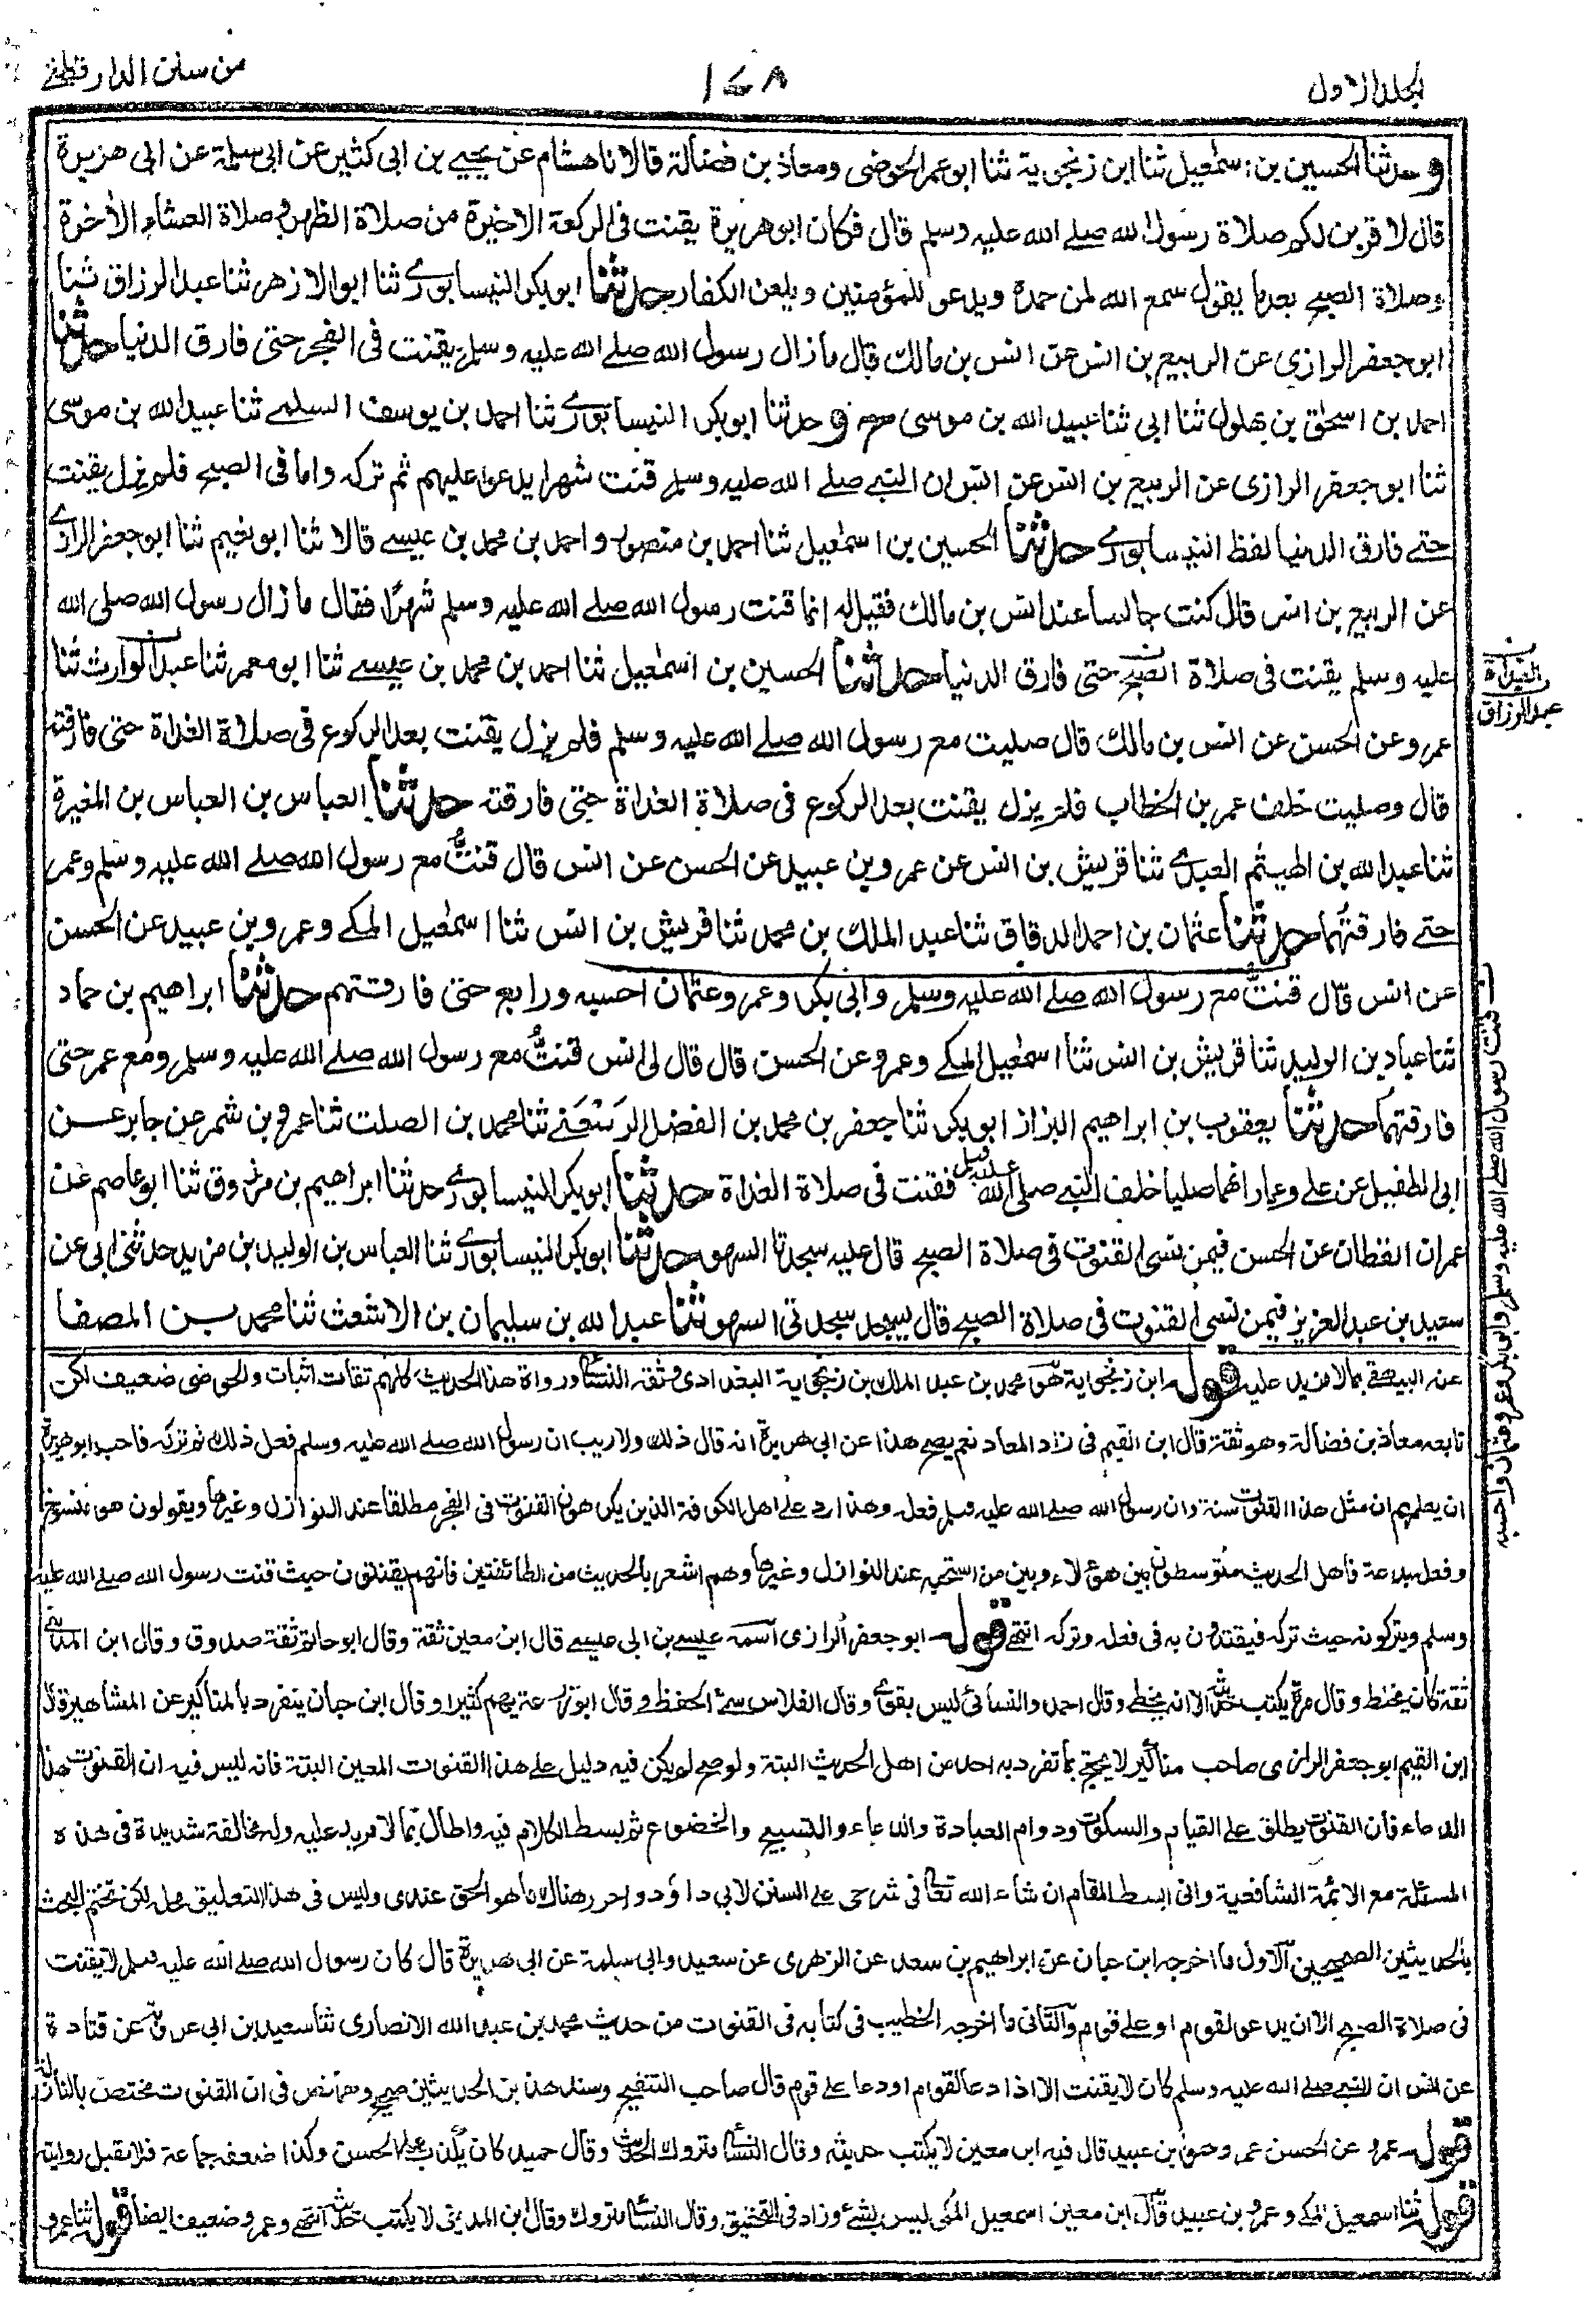 المجلد الاول
١٧٨
من سنن الدارقطنے
وحدثنا الحسين بن اسمٰعيل ثنا ابن زنجوية ثنا ابو عمر الحوضى ومعاذ بن فضالة قالا نا هشام عن يحيے بن ابى كثير عن ابى سلمة عن ابى هريرة
قال لاقربن لكم صلاة رسول الله صلے الله عليه وسلم قال فكان ابو هريرة يقنت فى الركعة الاخيرة من صلاة الظهر وصلاة العشاء الأخرة
وصلاة الصبح بعد ما يقول سمع الله لمن حمده ويدعو للمؤمنين ويلعن الكفار حدثنا ابو بكر النيسابورے ثنا ابو الازهر ثنا عبد الرزاق ثنا
ابو جعفر الرازى عن الربيع بن انس عن انس بن مالك قال ما زال رسول الله صلے الله عليه وسلم يقنت فى الفجر حتى فارق الدنيا حدثنا
احمد بن اسحٰق بن بهلول ثنا ابى ثنا عبيد الله بن موسى ح وحدثنا ابو بكر النيسابورے ثنا احمد بن يوسف السلمے ثنا عبيد الله بن موسى
ثنا ابو جعفر الرازى عن الربيع بن انس عن انس ان النبے صلے الله عليه وسلم قنت شهرا يدعو عليهم ثم تركه واما فى الصبح فلم يزل يقنت
حتے فارق الدنيا لفظ النيسابورے حدثنا الحسين بن اسمٰعيل ثنا احمد بن منصور واحمد بن محمد بن عيسے قالا ثنا ابو نعيم ثنا ابو جعفر الرازے
عن الربيع بن انس قال كنت جالسا عند انس بن مالك فقيل له انما قنت رسول الله صلے الله عليه وسلم شهرًا فقال ما زال رسول الله صلى الله
عليه وسلم يقنت فى صلاة الصبح حتى فارق الدنيا حدثنا الحسين بن اسمٰعيل ثنا احمد بن محمد بن عيسے ثنا ابو معمر ثنا عبد الوارث ثنا
عمرو عن الحسن عن انس بن مالك قال صليت مع رسول الله صلے الله عليه وسلم فلم يزل يقنت بعد الركوع فى صلاة الغداة حتى فارقته
قال وصليت خلف عمر بن الخطاب فلم يزل يقنت بعد الركوع فى صلاة الغداة حتى فارقته حدثنا العباس بن العباس بن المغيرة
ثنا عبد الله بن الهيثم العبدے ثنا قريش بن انس عن عمرو بن عبيد عن الحسن عن انس قال قنتُّ مع رسول الله صلے الله عليه وسلم وعمر
حتے فارقتُهما حدثنا عثمان بن احمد الدقاق ثنا عبد الملك بن محمد ثنا قريش بن انس ثنا اسمٰعيل المكے وعمرو بن عبيد عن الحسن
عن انس قال قنتُّ مع رسول الله صلے الله عليه وسلم وابى بكر وعمر وعثمان احسبه ورابع حتى فارقتهم حدثنا ابراهيم بن حماد
ثنا عباد بن الوليد ثنا قريش بن انس ثنا اسمٰعيل المكے وعمرو عن الحسن قال قال لى انس قنتُّ مع رسول الله صلے الله عليه وسلم ومع عمر حتى
فارقتهما حدثنا يعقوب بن ابراهيم البزاز ابو بكر ثنا جعفر بن محمد بن الفضل الرَسْعَنے ثنا محمد بن الصلت ثنا عمرو بن شمر عن جابر عن
ابى الطفيل عن على وعمار انهما صليا خلف النبے صلى الله عليه وسلم فقنت فى صلاة الغداة حدثنا ابو بكر النيسابورے حدثنا ابراهيم بن مرزوق ثنا ابو عاصم عن
عمران القطان عن الحسن فيمن نسى القنوت فى صلاة الصبح قال عليه سجدتا السهو حدثنا ابو بكر النيسابورے ثنا العباس بن الوليد بن مزيد حدثنى ابى عن
سعيد بن عبد العزيز فيمن نسى القنوت فى صلاة الصبح قال يسجد سجدتى السهو ثنا عبد الله بن سليمان بن الاشعث ثنا محمد بن المصفا
الغداة
عبد الرزاق
قنت رسول الله صلے الله عليه وسلم وابى بكر وعمر وعثمان واحسبه
عن البيهقے بما لا مزيد عليه قوله ابن زنجوية هو محمد بن عبد الملك بن زنجوية البغدادى وثقه النسائى ورواة هذا الحديث كلهم ثقات اثبات والحوضى ضعيف لكن
تابعه معاذ بن فضالة وهو ثقة قال ابن القيم فى زاد المعاد نعم يصح هذا عن ابى هريرة انه قال ذلك ولا ريب ان رسول الله صلے الله عليه وسلم فعل ذلك ثم تركه فاحب ابو هريرة
ان يعلمهم ان مثل هذا القنوت سنة وان رسول الله صلے الله عليه وسلم فعله وهذا رد على اهل الكوفة الذين يكرهون القنوت فى الفجر مطلقا عند النوازل وغيرها ويقولون هو منسوخ
وفعله بدعة فاهل الحديث متوسطون بين هؤلاء وبين من استحبه عند النوازل وغيرها وهم اشعر بالحديث من الطائفتين فانهم يقنتون حيث قنت رسول الله صلے الله عليه
وسلم ويتركونه حيث تركه فيقتدون به فى فعله وتركه انتهے قوله ابو جعفر الرازى اسمه عيسے بن ابى عيسے قال ابن معين ثقة وقال ابو حاتم ثقة صدوق وقال ابن المدينے
ثقة كان يخلط وقال مرة يكتب حديثه الا انه يخطى وقال احمد والنسائى ليس بقوے وقال الفلاس سئ الحفظ وقال ابو زرعة يهم كثيرا وقال ابن حبان ينفرد بالمناكير عن المشاهير قال
ابن القيم ابو جعفر الرازى صاحب مناكير لا يحتج بما تفرد به احد من اهل الحديث البتة ولو صح لم يكن فيه دليل على هذا القنوت المعين البتة فانه ليس فيه ان القنوت هذا
الدعاء فان القنوت يطلق على القيام والسكوت ودوام العبادة والدعاء والتسبيح والخضوع ثم بسط الكلام فيه واطال بما لا مزيد عليه وله مخالفة شديدة فى هذه
المسئلة مع الائمة الشافعية وانى ابسط المقام ان شاء الله تعالى فى شرحى على السنن لابى داؤد واحرر هنالك ما هو الحق عندى وليس فى هذا التعليق محله لكن نختم البحث
بالحديثين الصحيحين الاول ما اخرجه ابن حبان عن ابراهيم بن سعد عن الزهرى عن سعيد وابى سلمة عن ابى هريرة قال كان رسول الله صلے الله عليه وسلم لا يقنت
فى صلاة الصبح الا ان يدعو لقوم او على قوم والثانى ما اخرجه الخطيب فى كتابه فى القنوت من حديث محمد بن عبد الله الانصارى ثنا سعيد بن ابى عروبة عن قتادة
عن انس ان النبے صلے الله عليه وسلم كان لا يقنت الا اذا دعا لقوم او دعا على قوم قال صاحب التنقيح وسند هذين الحديثين صحيح وهما نص فى ان القنوت مختص بالنازلة
قوله عمرو عن الحسن عمرو هو ابن عبيد قال فيه ابن معين لا يكتب حديثه وقال النسائى متروك الحديث وقال حميد كان يكذب على الحسن وكذا ضعفه جماعة فلا تقبل روايته
قوله ثنا اسمعيل المكے وعمرو بن عبيد قال ابن معين اسمعيل المكى ليس بشئ وزاد فى التحقيق وقال النسائى متروك وقال ابن المدينى لا يكتب حديثه انتهے وعمرو ضعيف ايضا قوله ثنا عمرو